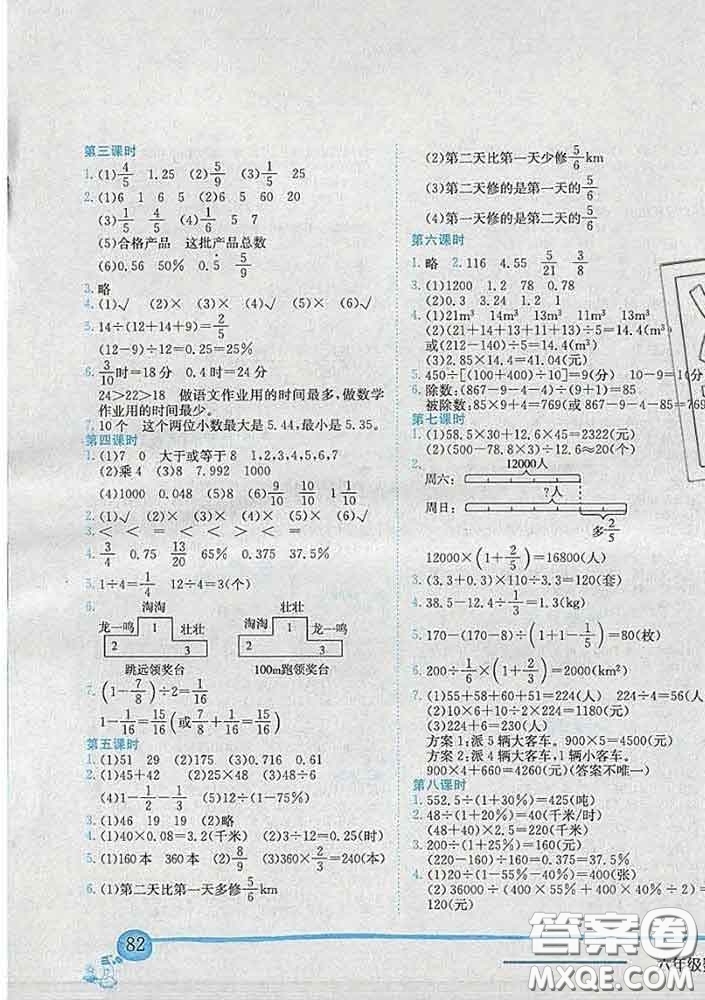 第三课时
1. (1)4/5 1.25 (2)5/9 (3)1/5 25
2. (1)6 1 6 5 (2)6 5 60 20
(3)1/5 4/5 (4)1/6 5 7
(5)合格产品 这批产品总数
(6)0.56 50% 0.5 5/9
3. 略
4. (1)√ (2)× (3)× (4)√
5. 14÷(12+14+9)=2/5
(12-9)÷12=25%
6. 3/10时=18分 0.4时=24分
24>22>18 做语文作业用的时间最多,做数学
作业用的时间最少。
7. 10个 这个两位小数最大是5.44,最小是5.35。
第四课时
1. (1)7 0 大于或等于8 1,2,3,4,5,6,7
(2)乘4 (3)8 7.992 8
(4)1000 0.048 (5)9/10 9/10 1 1/10
2. (1)√ (2)× (3)√ (4)√ (5)×
3. < < = < < =
4. 3/4 0.75 13/20 65% 0.375 37.5%
5. 1÷4=1/4 12÷4=3(个)
6.
淘淘
龙一鸣 1 壮壮
2 3
跳远领奖台
淘淘
壮壮 1 龙一鸣
2 3
100m跑领奖台
7. (1-7/8)÷2=1/16
1-1/16=15/16(或7/8+1/16=15/16)
第五课时
1. (1)51 29 (2)175 (3)0.716 0.61
2. (1)45+42 (2)25×48 (3)48÷6
(4)1-1/2-1/3 (5)12÷(1-75%)
3. (1)46 19 19 (2)略
4. (1)40×0.08=3.2(千米) (2)3÷12=0.25(时)
5. (1)160本 360本 (2)8/9 (3)360×2/3=240(本)
6. (1)第二天比第一天多修5/6km
(2)第二天比第一天少修5/6km
(3)第二天修的是第一天的5/6
(4)第一天修的是第二天的5/6
第六课时
1. 略 2. 116 4.55 5/21 3/8
3. (1)1200 1.2 78 0.78
(2)0.3 2 3.24 0.0324
4. (1)21m³ 14m³ 13m³ 11m³ 13m³
(2)(21+14+13+11+13)÷5=14.4(m³)
或(212-140)÷5=14.4(m³)
(3)2.85×14.4=41.04(元)
5. 450÷[(100+400)÷10]=9(分) 10-9=1(分)
6. 除数:(867-9-4-4)÷(9+1)=85
被除数:85×9+4=769(或867-9-4-85=769)
第七课时
1. (1)58.5×30+12.6×45=2322(元)
(2)(500-78.8×3)÷12.6≈20(个)
2.
12000人
周六:
?人
周日:
多2/5
12000×(1+2/5)=16800(人)
3. (3.3+0.3)×110÷3.3=120(套)
4. 38.5-12.4÷1/3=1.3(kg)
5. 170-(170-8)÷(1+1-1/5)=80(枚)
6. 200÷1/6×(1+2/3)=2000(km²)
7. (1)55+58+54+57=224(人) 224÷4=56(人)
(2)10×56+10×2×224÷4... 
(3)224+6=230(人)
方案1:派5辆大客车。900×5=4500(元)
方案2:派4辆大客车,1辆小客车。
900×4+660=4260(元)(答案不唯一)
第八课时
1. 552.5÷(1+30%)=425(吨)
2. 48÷(1+20%)=40(千米/时)
(48+40)×2.5=220(千米)
3. 200÷(1+25%)=160(元)
(220-160)÷160=37.5%
4. (1)20÷(55%-50%)=400(张)
(2)36000÷(400×55%+400×40%÷2)=
120(元)
82
六年级
答案圈
MXQE.COM